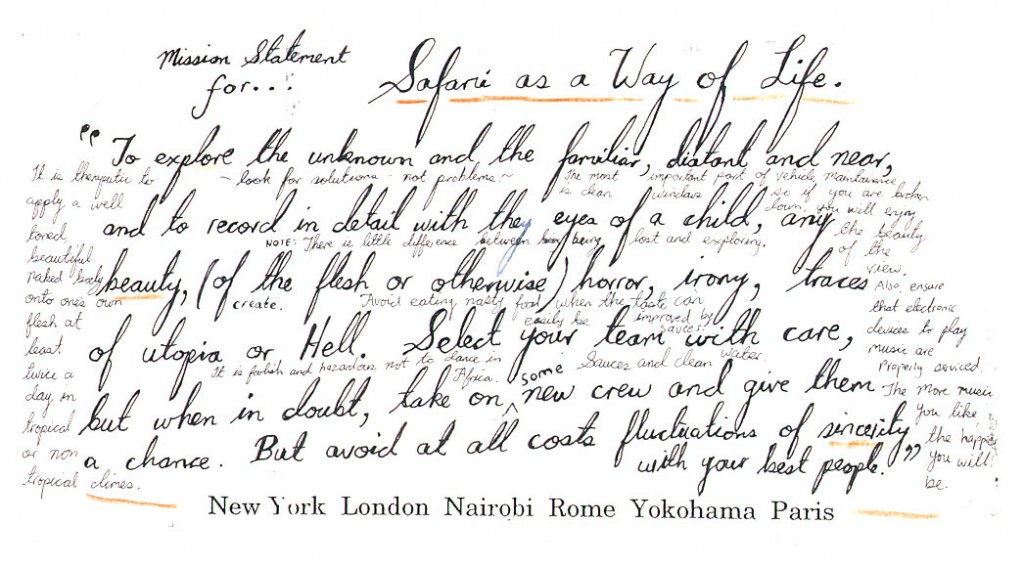 Mission Statement
for...
Safari as a Way of Life.
"To explore the unknown and the familiar, distant and near,
~ look for solutions - not problems. ~
The most important part of vehicle maintainance
is clean windows so if you are broken
down, you will enjoy
the beauty
of the
view.
and to record in detail with the eyes of a child, any
NOTE: There is little difference between being being lost and exploring.
beauty, (of the flesh or otherwise) horror, irony, traces
create.
Avoid eating nasty food when the taste can
easily be improved by
sauces.
of utopia or Hell. Select your team with care,
It is foolish and hazardous not to dance in
Africa.
Sauces and clean water.
but when in doubt, take on some new crew and give them
a chance. But avoid at all costs fluctuations of sincerity
with your best people."
It is theraputic to
apply a well
toned,
beautiful
naked body
onto one's own
flesh at
least
twice a
day, in
tropical
or non
tropical climes.
Also, ensure
that electronic
devices to play
music are
properly serviced.
The more music
you like,
the happier
you will
be.
New York London Nairobi Rome Yokohama Paris